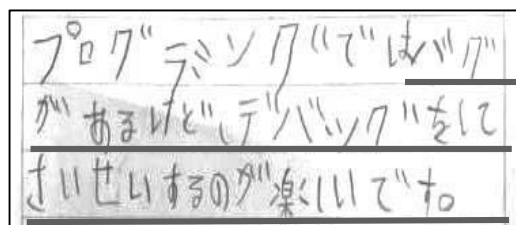 プログラミングではバグ
があるけど、デバッグをして
さいせいするのが楽しいです。